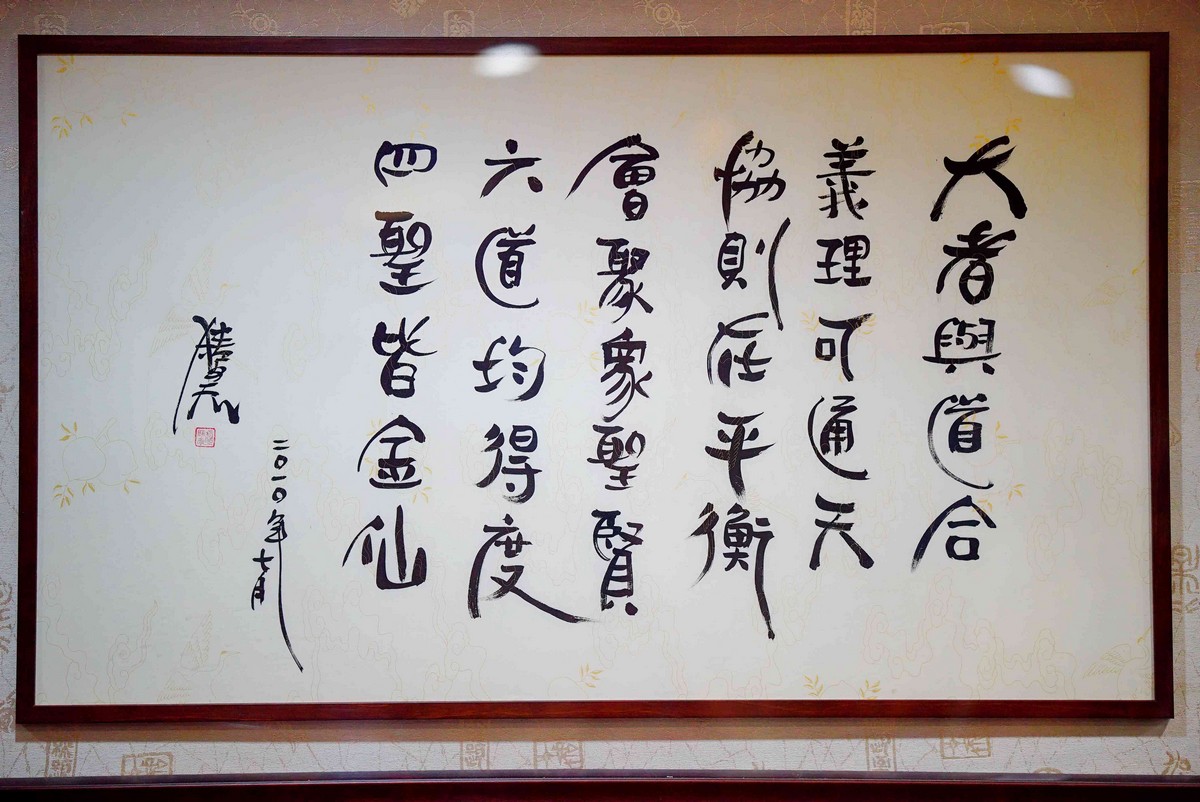 大者與道合
義理可通天
協則在平衡
會聚眾聖賢
六道均得度
四聖皆金仙
二〇一〇年七月